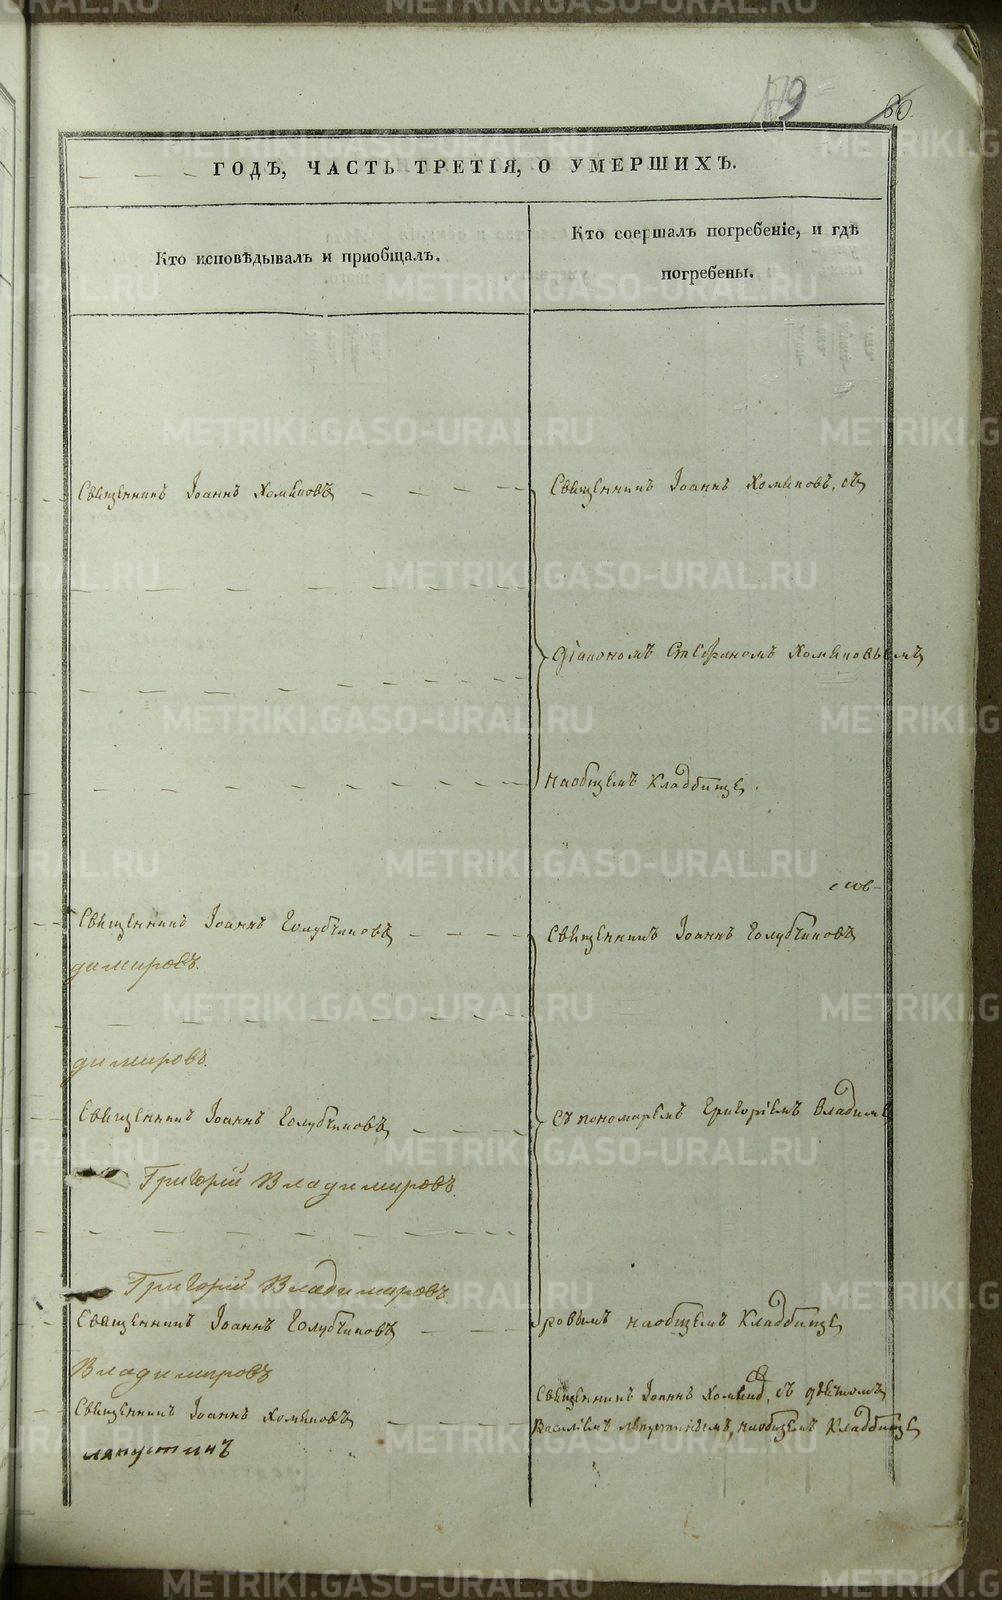 179
80.
ГОДЪ, ЧАСТЬ ТРЕТІЯ, О УМЕРШИХЪ.
Кто исповѣдывалъ и приобщалъ.
Кто соершалъ погребеніе, и гдѣ
погребены.
Священникъ Іоаннъ Хомяковъ
Священникъ Іоаннъ Хомяковъ, съ
Діакономъ Стефаномъ Хомяковымъ
на общемъ кладбище.
Священникъ Іоаннъ Голубчиковъ
Священникъ Іоаннъ Голубчиковъ
димировъ.
димировъ.
Священникъ Іоаннъ Голубчиковъ
съ пономаремъ Григоріемъ Владими
Григорій Владимировъ.
Григорій Владимировъ
Священникъ Іоаннъ Голубчиковъ
ровымъ на общемъ кладбище
Владимировъ
Священникъ Іоаннъ Хомяковъ
Священникъ Іоаннъ Хомяков, съ дьячкомъ
Василіемъ Лапустинымъ, на общемъ кладбище
лапустинъ
METRIKI.GASO-URAL.RU